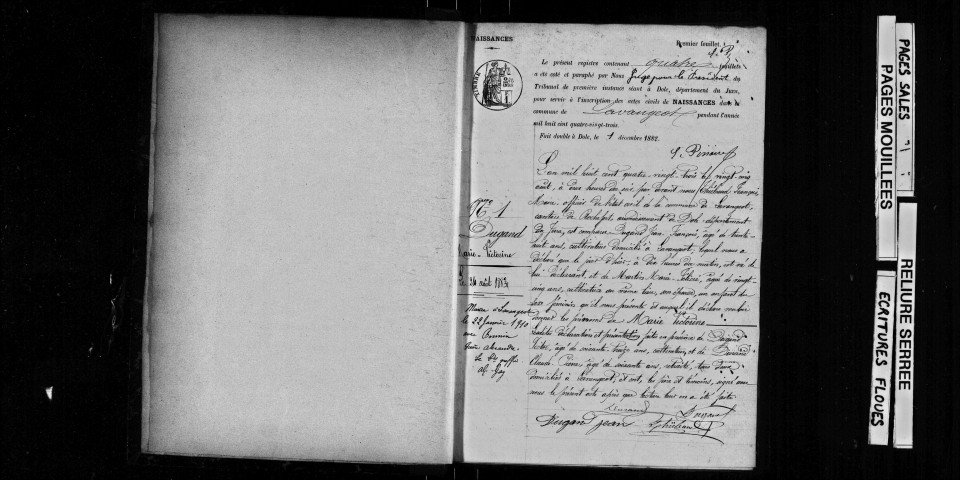 NAISSANCES
Premier feuillet
Le présent registre contenant quatre feuillets
a été coté et paraphé par Nous Juge pour le Président du
Tribunal de première instance séant à Dole, département du Jura,
pour servir à l'inscription des actes civils de NAISSANCES dans la
commune de Lavangeot pendant l'année
mil huit cent quatre-vingt-trois.
Fait double à Dole, le 1 décembre 1882.
N° 1
Dugand
Marie-Victorine
Mariée à Lavangeot
le 22 janvier 1910
avec
L'an mil huit cent quatre-vingt-trois le vingt cinq
août, à deux heures du soir par devant nous Thiébaud François
Maire, officier de l'état civil de la commune de Lavangeot,
canton de Rochefort, arrondissement de Dole, département
du Jura, est comparu Dugand Jean François, âgé de trente
huit ans, cultivateur domicilié à Lavangeot, lequel nous a
déclaré que le jour d'hier, à dix heures du matin, est né de
lui déclarant, et de Martin Marie, âgée de vingt
cinq ans, cultivatrice au même lieu, son épouse, un enfant du
sexe féminin qu'il nous présente et auquel il déclare vouloir
donner les prénoms de Marie Victorine
déclaration et présentation faites en présence de Dugand
âgé de soixante treize ans, cultivateur, et de
Claude âgé de soixante ans, tous deux
domiciliés à Lavangeot, et ont, les père et témoins, signé avec
nous le présent acte après que lecture leur en a été faite
Dugand Jean Thiébaud
PAGES SALES
PAGES MOUILLEES
RELIURE SERREE
ECRITURES FLOUES